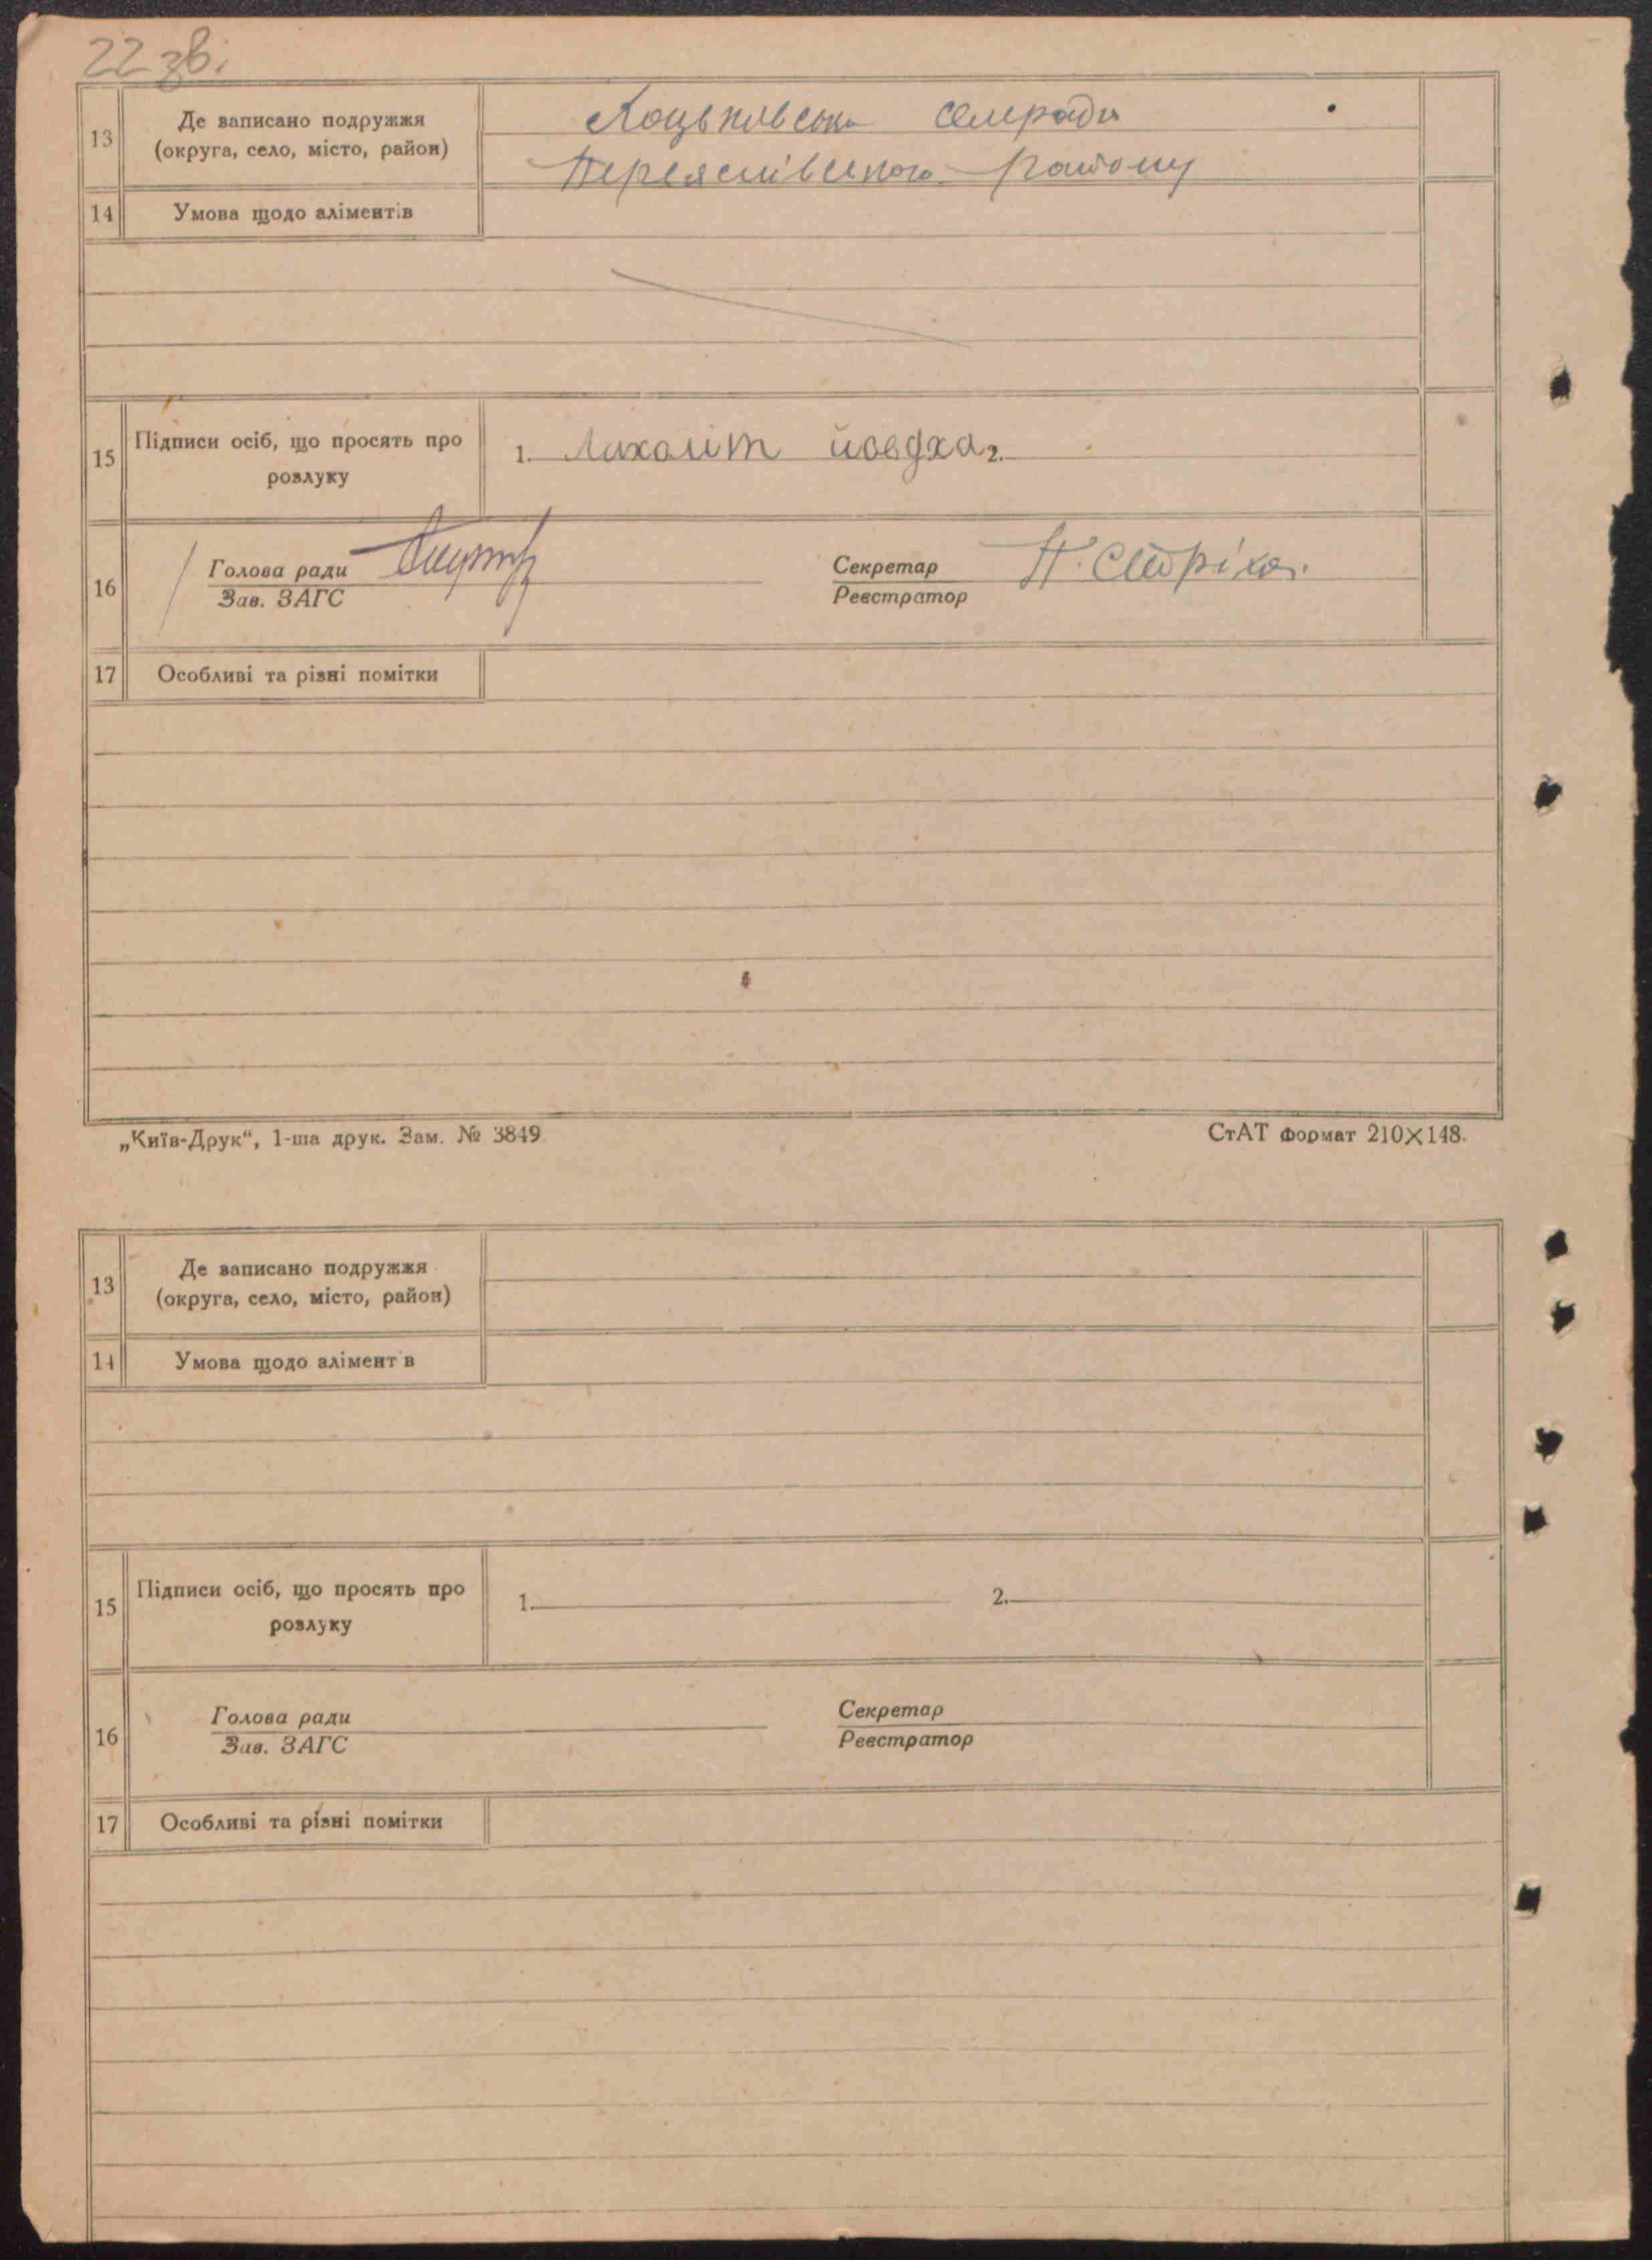 22 зв.
13 Де записано подружжя
(округа, село, місто, район)
Коцьківська сельради
Переяслівського району
14 Умова щодо аліментів
15 Підписи осіб, що просять про
розлуку
1. 2.
16 Голова ради
Зав. ЗАГС
Секретар
Реєстратор
17 Особливі та різні помітки
„Київ-Друк“, 1-ша друк. Зам. № 3849
СтАТ формат 210×148.
13 Де записано подружжя
(округа, село, місто, район)
14 Умова щодо алімент в
15 Підписи осіб, що просять про
розлуку
1. 2.
16 Голова ради
Зав. ЗАГС
Секретар
Реєстратор
17 Особливі та різні помітки